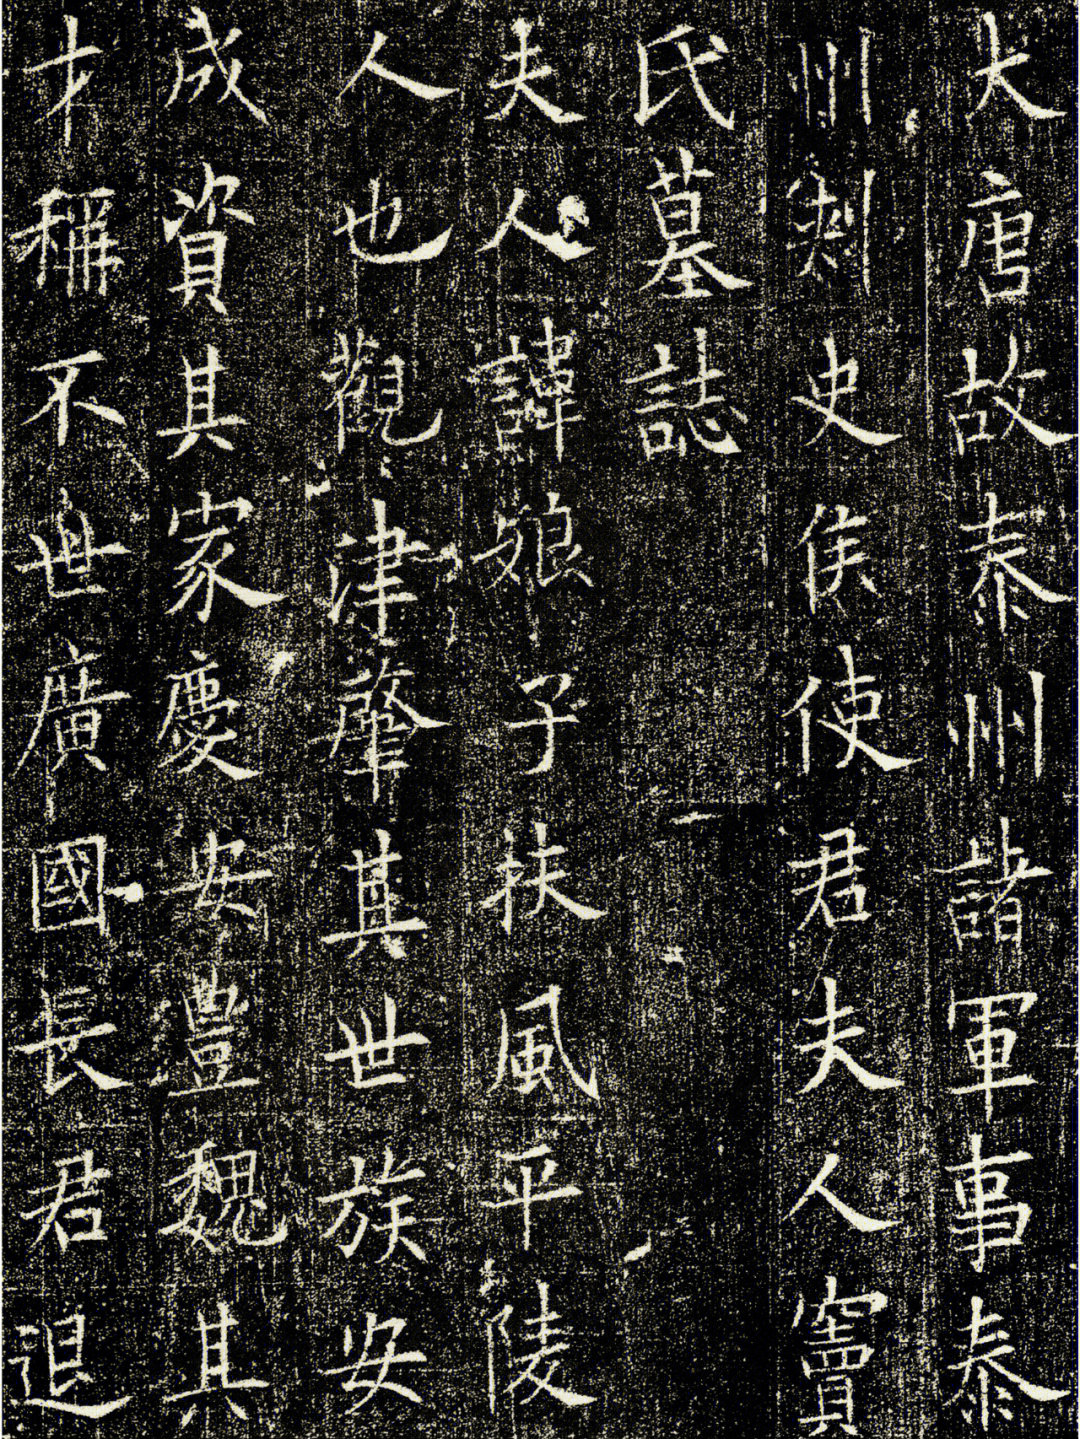 大唐故泰州諸軍事泰
州刺史侯使君夫人竇
氏墓誌
夫人諱娘子扶風平陵
人也觀津肇其世族安
成資其家慶安豊魏其
才稱不世廣國長君退